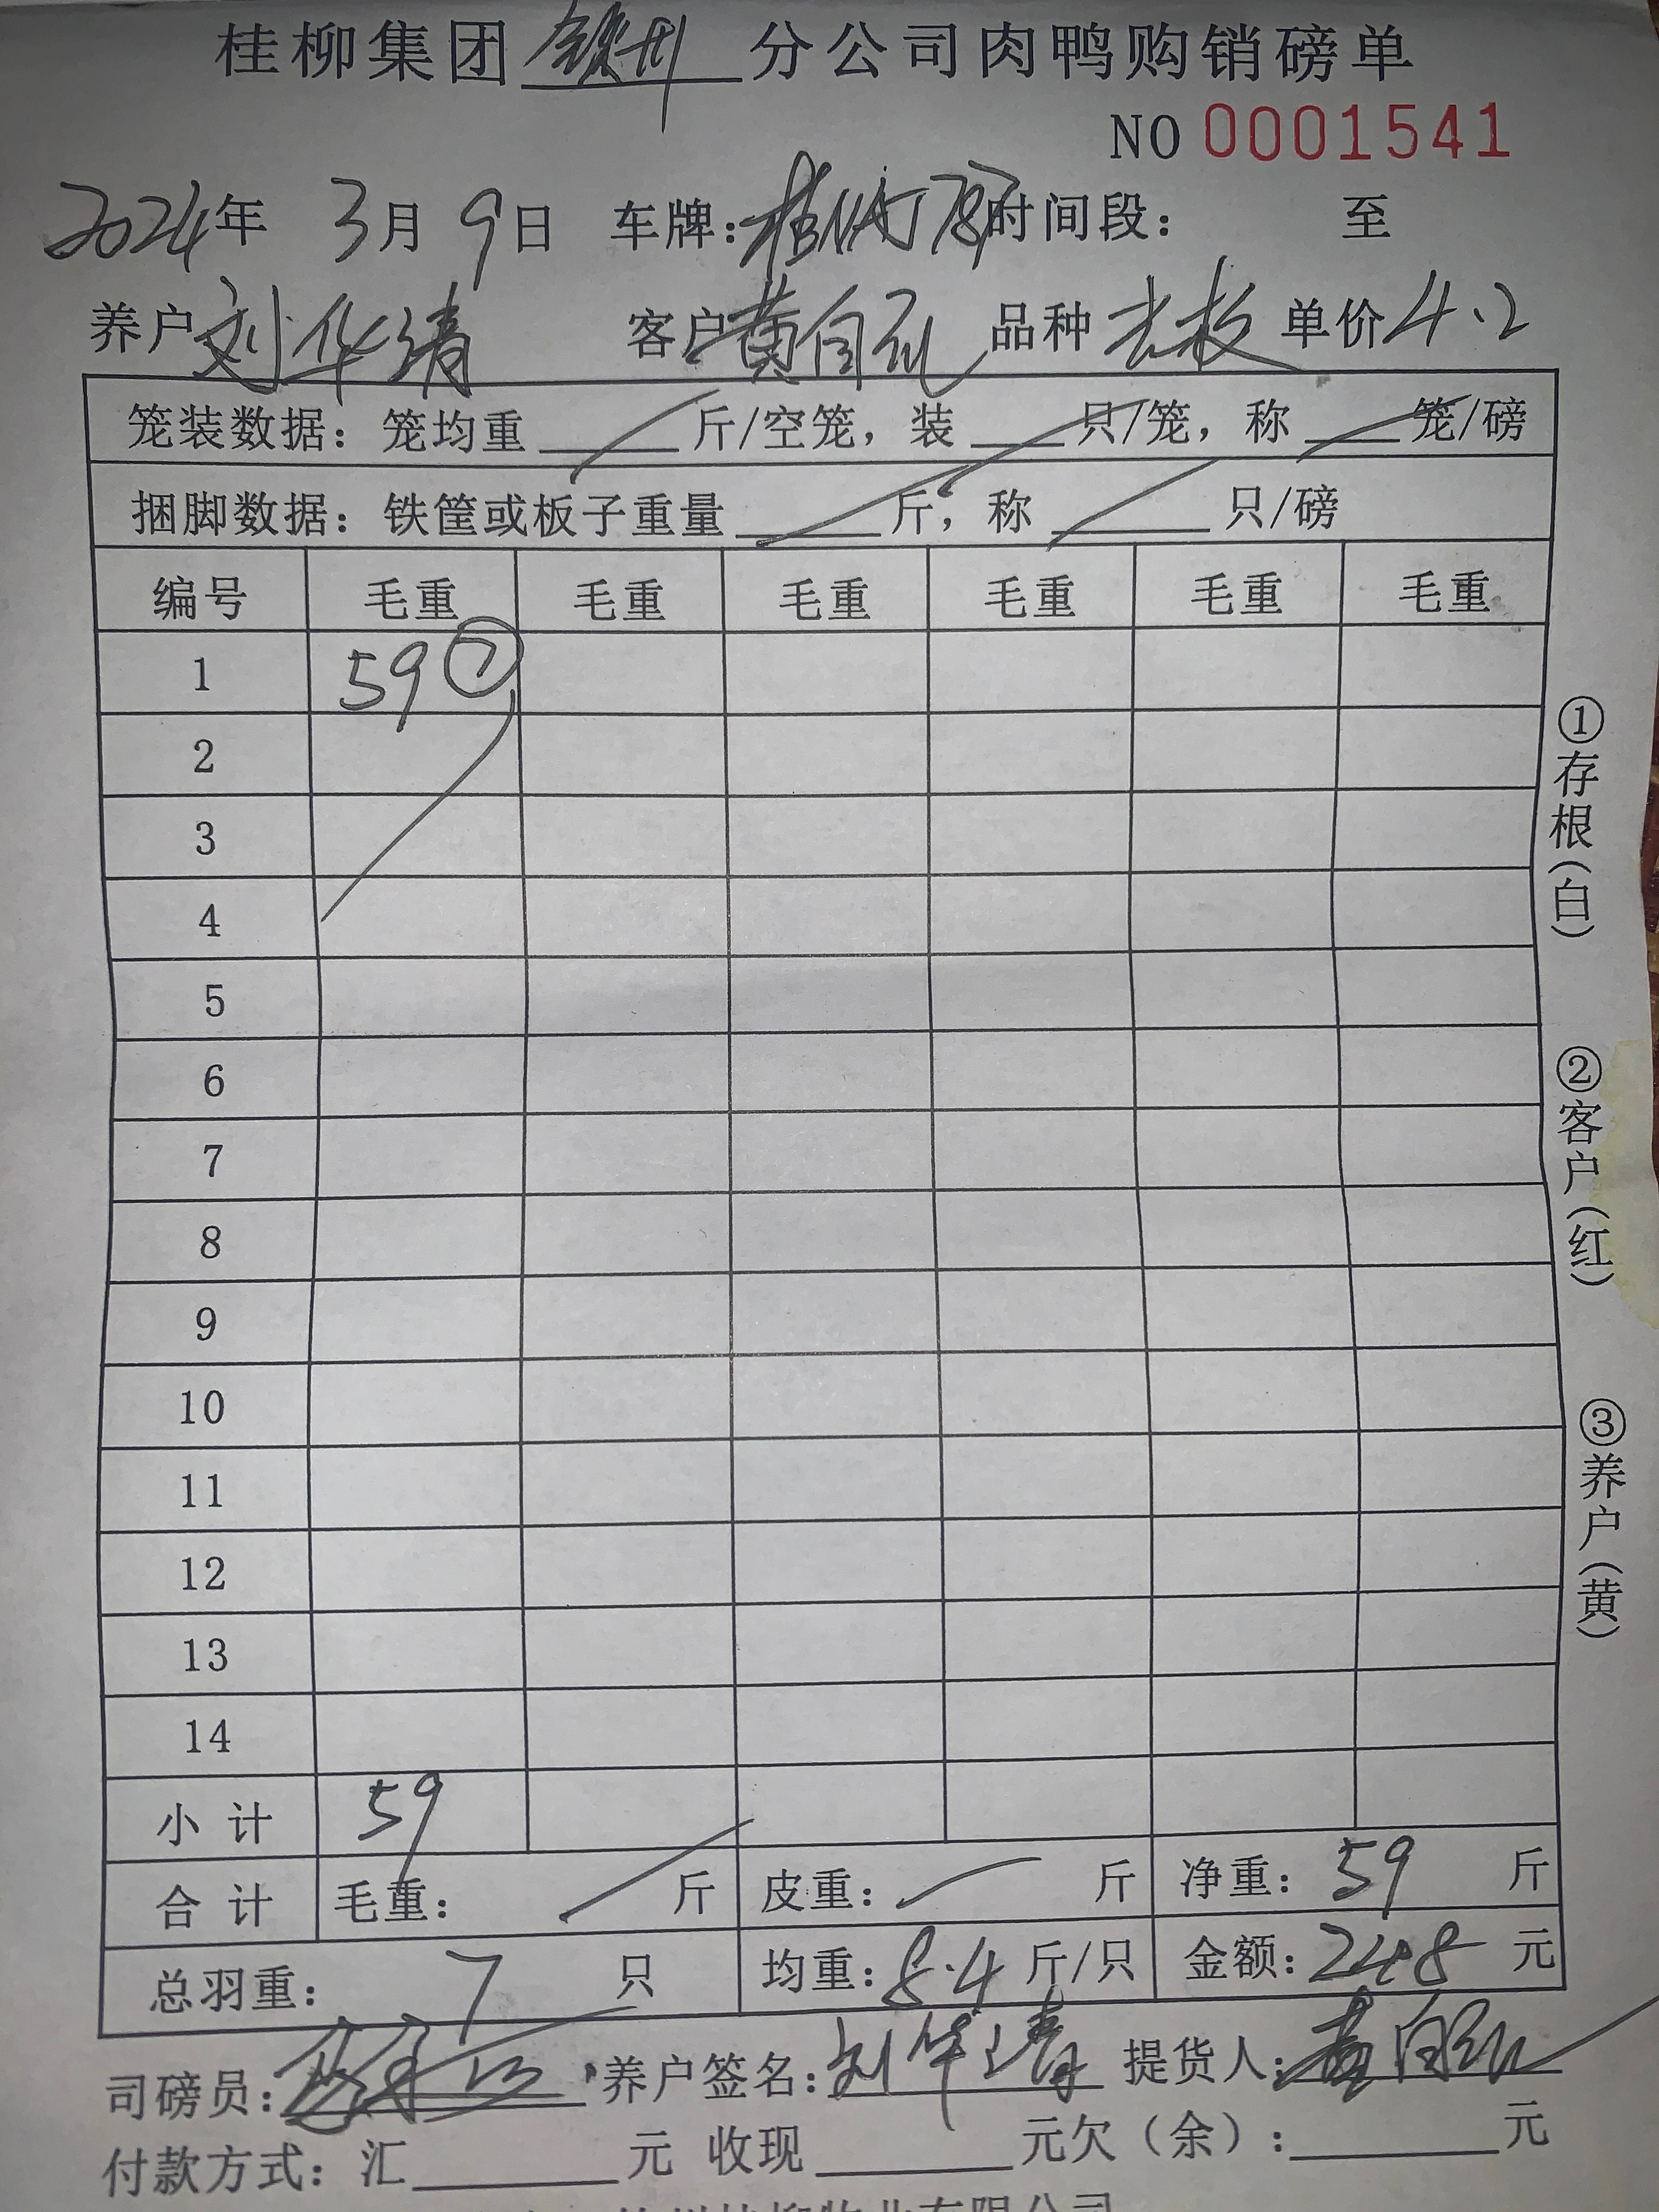 桂柳集团钦州分公司肉鸭购销磅单
NO 0001541
2024年 3月 9日 车牌: 时间段： 至
养户 刘华清 客户 黄自 品种 单价 4.2
笼装数据：笼均重 斤/空笼，装 只/笼，称 笼/磅
捆脚数据：铁筐或板子重量 斤，称 只/磅
编号 毛重 毛重 毛重 毛重 毛重 毛重
1 59 ⑦
2
3
4
5
6
7
8
9
10
11
12
13
14
小 计 59
合 计 毛重： 斤 皮重： 斤 净重：59 斤
总羽重： 7 只 均重：8.4 斤/只 金额：248 元
司磅员： 养户签名：刘华清 提货人：黄自
付款方式：汇 元 收现 元欠（余）： 元
①存根（白）
②客户（红）
③养户（黄）